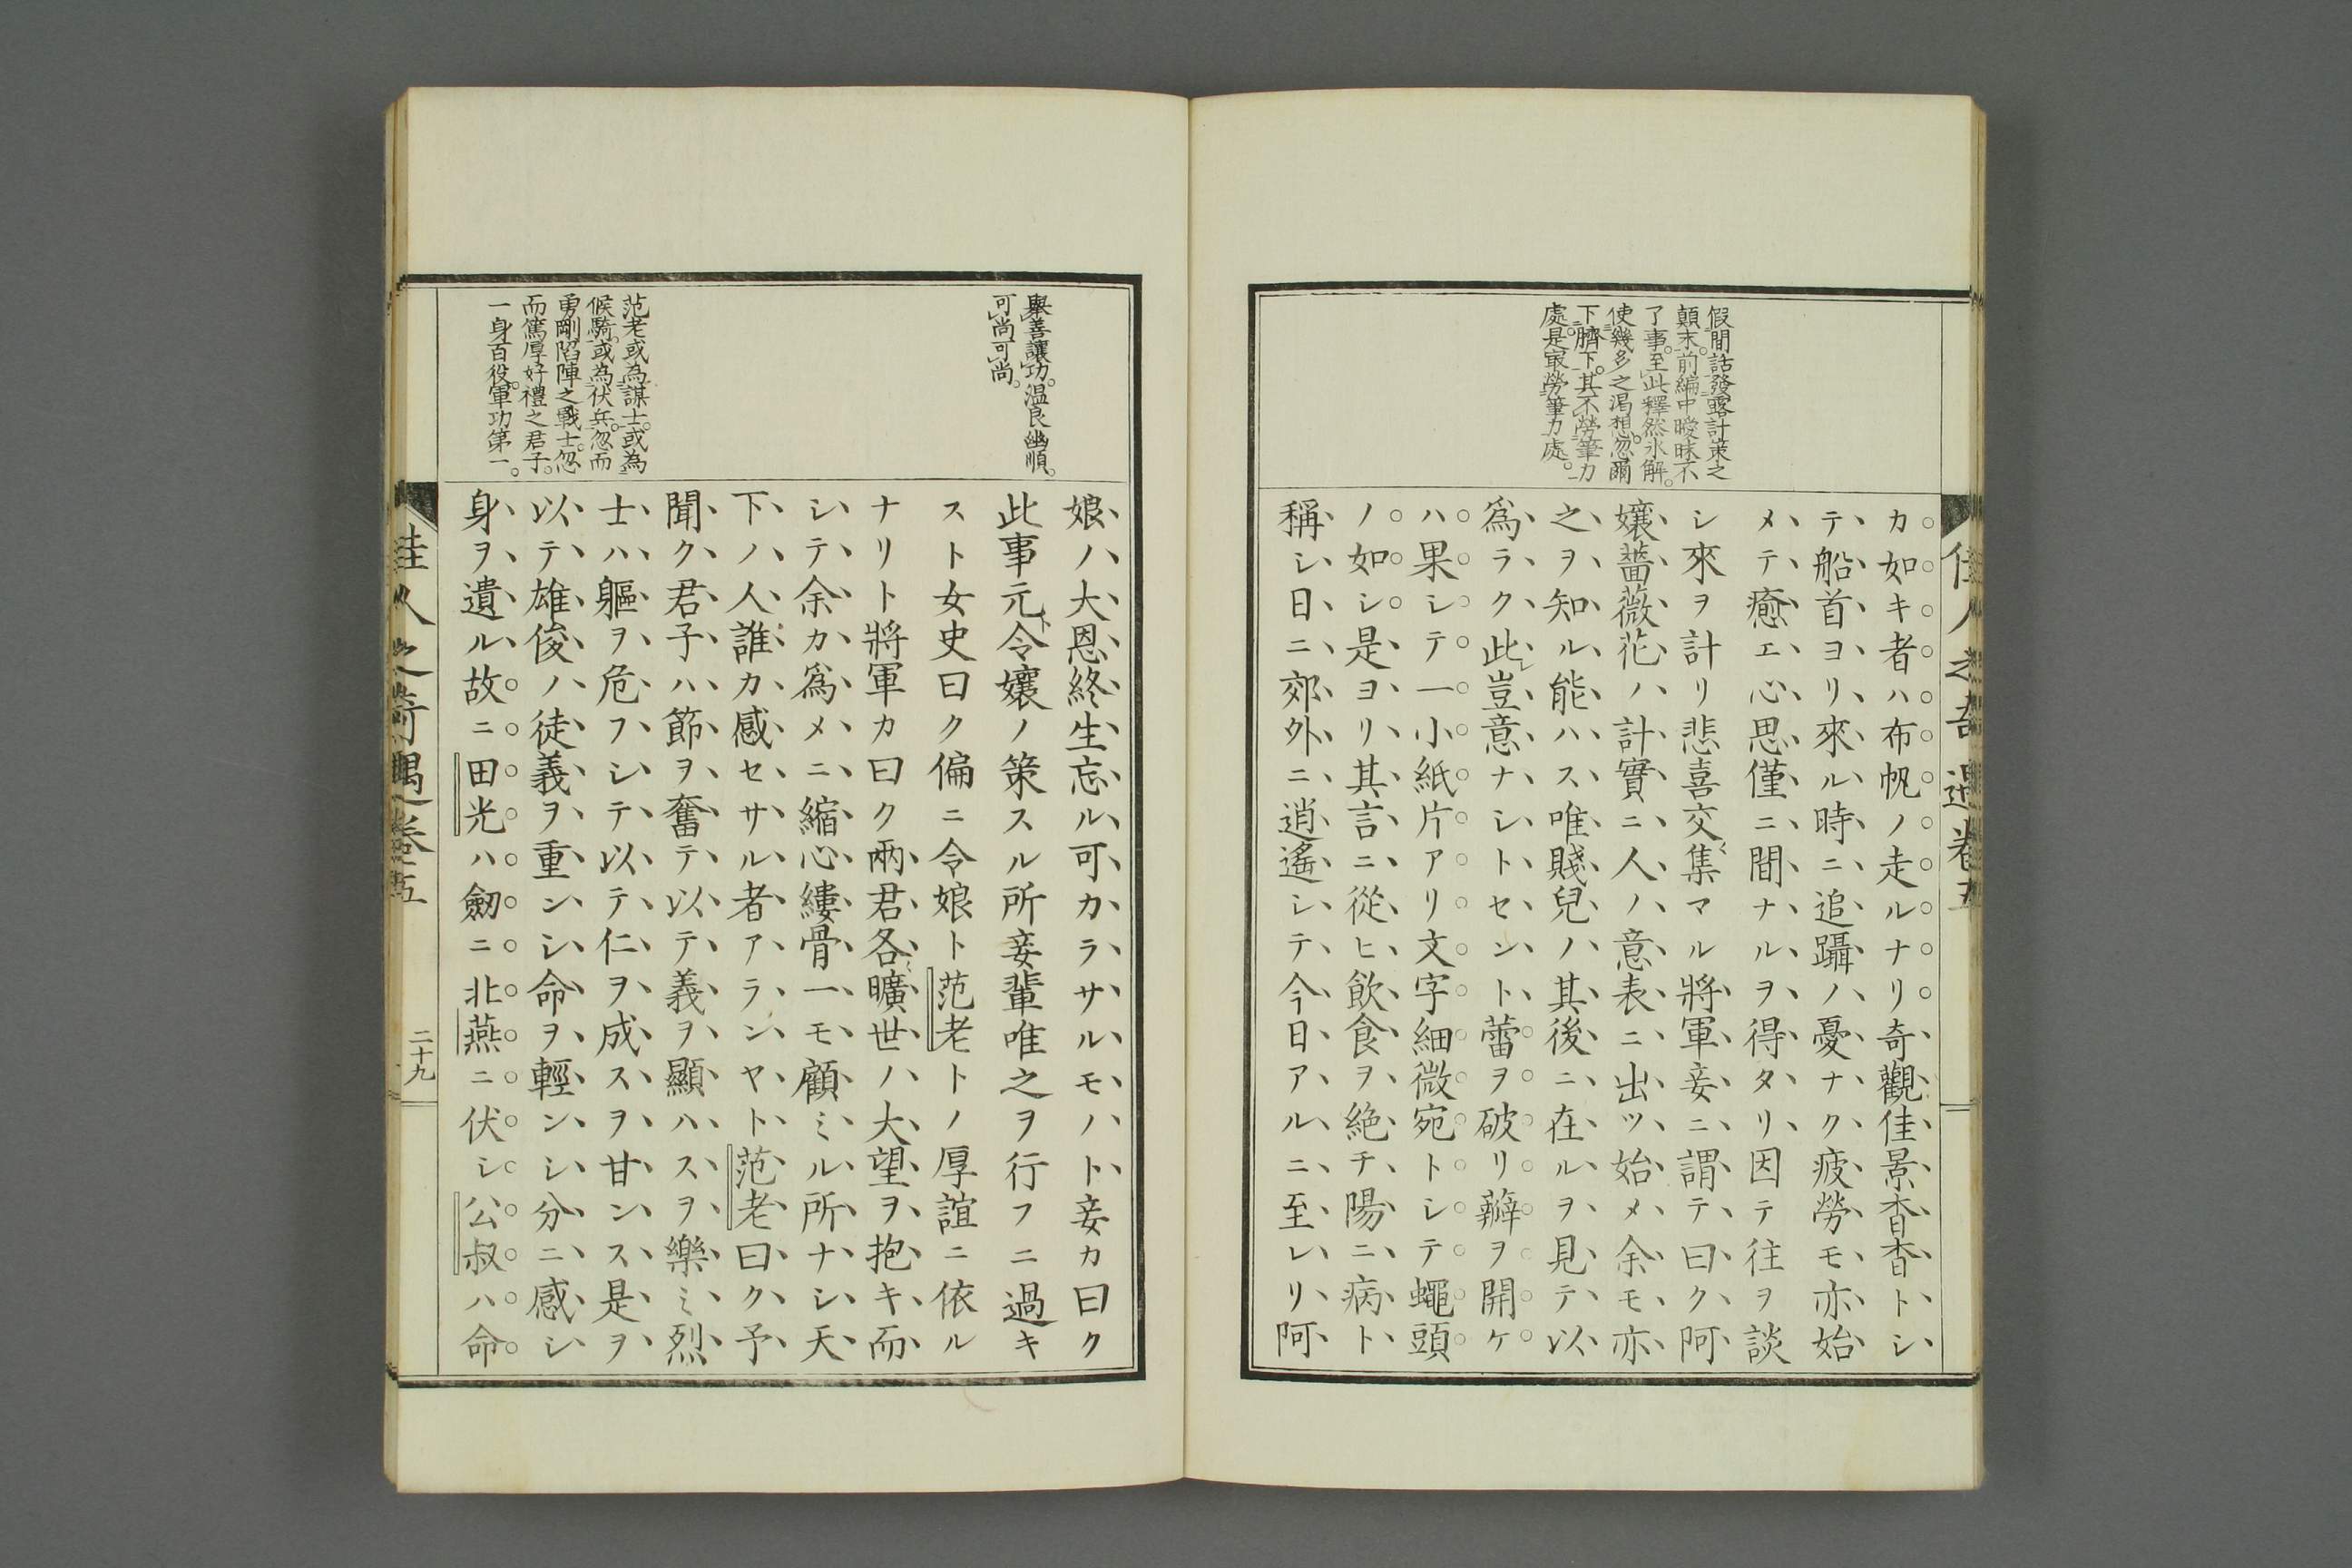 佳人之奇遇卷五
假間話發露計策之
顛末前編中曖昧不
了事至此釋然氷解
使幾多之渇想忽爾
下臍下其不勞筆力
處是最勞筆力處
カ如キ者ハ布帆ノ走ルナリ奇觀佳景杳杳トシ
テ船首ヨリ來ル時ニ追躡ノ憂ナク疲勞モ亦始
メテ癒エ心思僅ニ間ナルヲ得タリ因テ往ヲ談
シ來ヲ計リ悲喜交〻集マル將軍妾ニ謂テ曰ク阿
孃薔薇花ノ計實ニ人ノ意表ニ出ツ始メ余モ亦
之ヲ知ル能ハス唯賤兒ノ其後ニ在ルヲ見テ以
爲ラク此レ豈意ナシトセント蕾ヲ破リ瓣ヲ開ケ
ハ果シテ一小紙片アリ文字細微宛トシテ蠅頭
ノ如シ是ヨリ其言ニ從ヒ飮食ヲ絶チ陽ニ病ト
稱シ日ニ郊外ニ逍遙シテ今日アルニ至レリ阿
擧善讓功温良幽順
可尚可尚
范老或為謀士或為
候騎或為伏兵忽而
勇剛陷陣之戰士忽
而篤厚好禮之君子
一身百役軍功第一
娘ノ大恩終生忘ル可カラサルモノト妾カ曰ク
此事元ト令孃ノ策スル所妾輩唯之ヲ行フニ過キ
スト女史曰ク偏ニ令娘ト范老トノ厚誼ニ依ル
ナリト將軍カ曰ク兩君各〻曠世ノ大望ヲ抱キ而
シテ余カ爲メニ縮心縷骨一モ顧ミル所ナシ天
下ノ人誰カ感セサル者アランヤト范老曰ク予
聞ク君子ハ節ヲ奮テ以テ義ヲ顯ハスヲ樂ミ烈
士ハ軀ヲ危フシテ以テ仁ヲ成スヲ甘ンス是ヲ
以テ雄俊ノ徒義ヲ重ンシ命ヲ輕ンシ分ニ感シ
身ヲ遺ル故ニ田光ハ劒ニ北燕ニ伏シ公叔ハ命
佳人之奇遇卷五
二十九